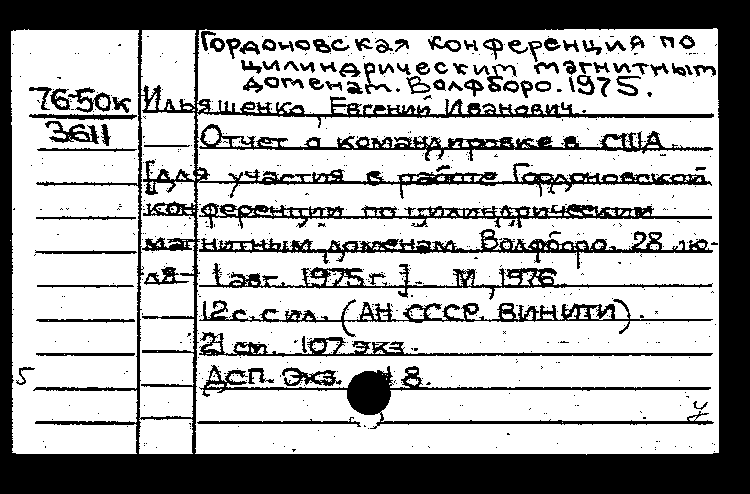 Гордоновская конференция по
цилиндрическим магнитным
доменам. Волфборо. 1975.
76-50к Ильяшенко, Евгений Иванович.
3611 Отчет о командировке в США
[для участия в работе Гордоновской
конференции по цилиндрическим
магнитным доменам. Волфборо. 28 ию-
ля- 1 авг. 1975 г.]. М., 1976.
12 с. с ил. (АН СССР. ВИНИТИ).
21 см. 107 экз.
5 ДСП. Экз. 8.